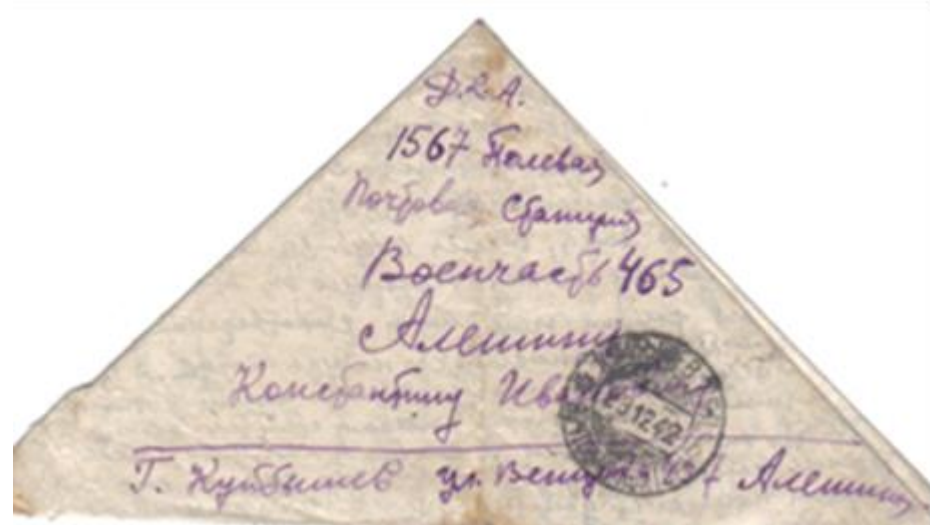 Д.К.А.
1567 Полевая
Почтовая Станция
Воинчасть 465
Алешину
Константину
23 12 42
Г. Куйбышев ул. Алешина